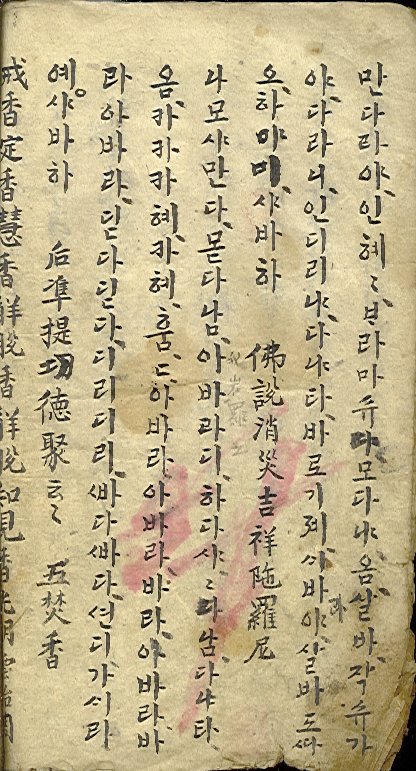 만다라야、인혜〻、ᄇᆞ라마슈다、모다냐、옴、살바、작슈가
야、다라니、인디리냐、다냐타、바로기졔、바야、살바도ᄯᅡ
오、하야미、사바하 佛說消災吉祥陁羅尼
나모사만다、몯다남、아바라디、하다사、〻다남、다냐타
옴、카카카혜、카혜、훔、〻아바라、아바라、바라、아바라、바
라아바라、딛다딛다、디리디리、ᄲᅡ다ᄲᅡ다、션디가시리
예、사바하 后準提功德聚云〻 五焚香
戒香定香慧香解脫香解脫知見香光明雲臺周